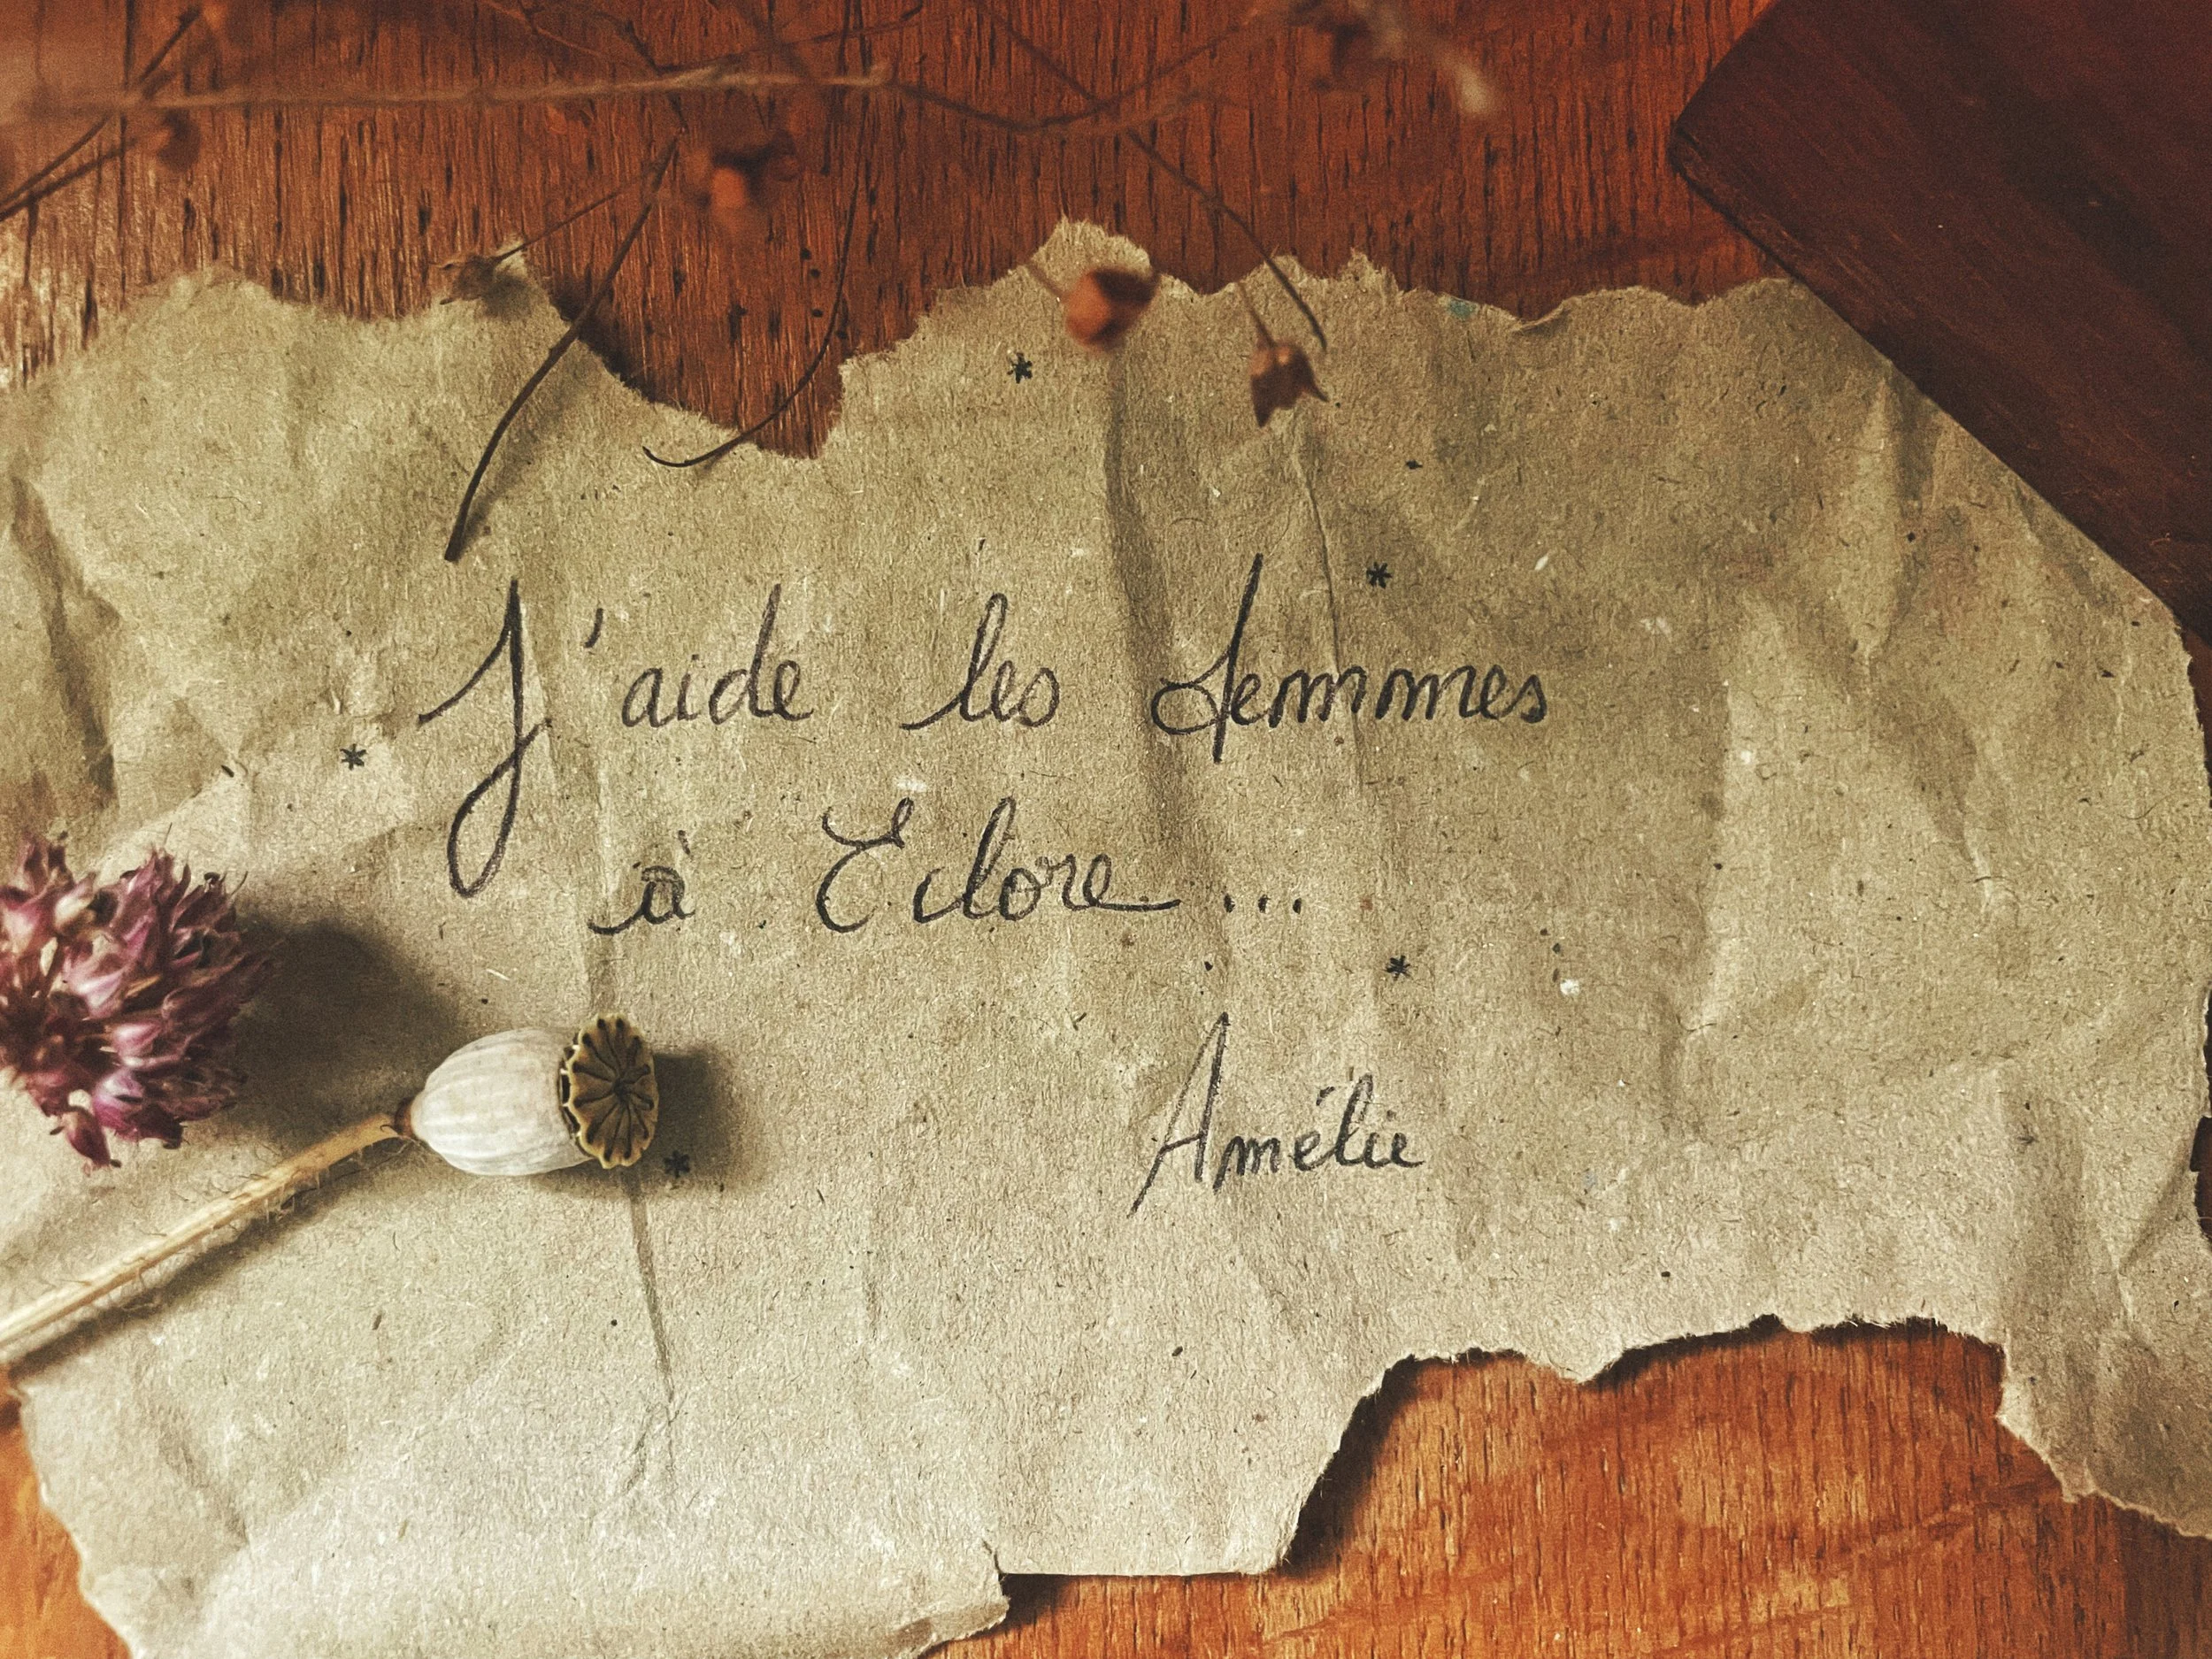 J'aide les femmes
à Eclore...
Amélie